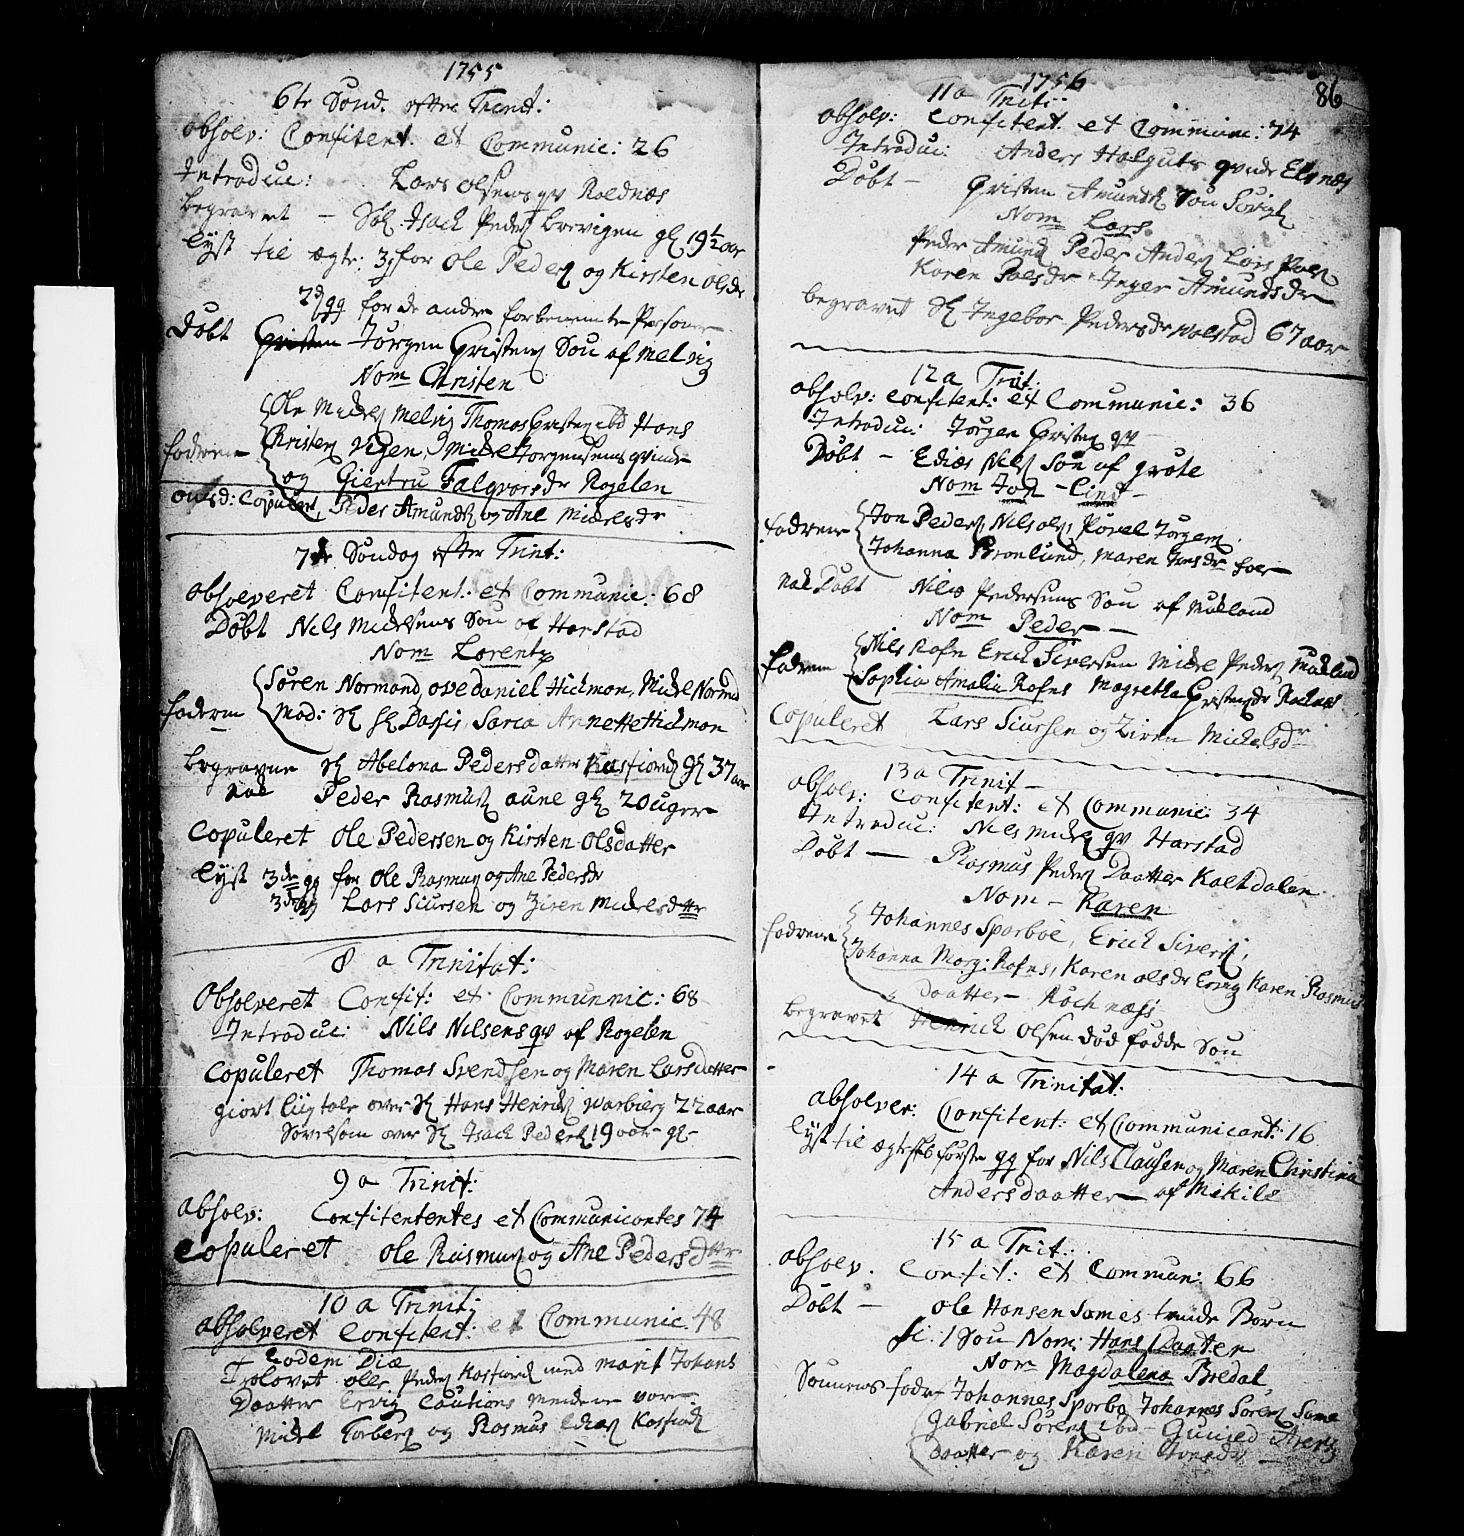 1755
6te Sönd. efter Trinit:
absolv: Confitent. et Communic: 26
Introduc: Lars Olsens qv Roldnæs
begravet - Sl. Isach Peders Brevigen gl 19 1/2 aar
lyst til ægte: 3j for Ole Peders og Kirsten Olsdr
2d gg for de andre forbenemte Personer
Döbt Christen Jörgen Christens Sön af Melvig
Nom Christen
Ole Mickels Melvig Thomas Christens ibd Hans
fadrene Kristens Vigen, Mickel Jörgensens qvinde
og Giertru Falqvorsdr Rogelen
onsd: Copulert, Peder Amunds og Ane Mickelsdr
7de Söndag efter Trint:
absolveret Confitent: et Communic: 68
Döbt Nils Mickelsens Sön af Harstad
Nom Lorentz
Sören Normand, Ove Daniel Hickmon, Mickel Normd
fadrene Mad: Sl Hl Dassis, Sarca Annette Hickmon
begravne Sl Abelona Pedersdatter Kasfiord gl 37 aar
Peder Rasmus aune gl 20 uger
Copuleret Ole Pedersen og Kirsten Olsdatter
lyst 3de gg for Ole Rasmus og Ane Pedersdr
3de gg Lars Siursen og Ziren Mickelsdttr
8 a Trinitat:
Absolveret Confit: et Communnic: 68
Introduc: Nils Nilsens qv af Rogelen
Copuleret Thomas Svendsen og Maren Larsdatter
giort liigtale over Sl Hans Henrick Varbierg 22 aar
Sovelsom over Sl Isach Peders 19 aar gl
9 a Trinit:
absolv: Confitententes et Communicontes 74
Copuleret Ole Rasmus og Ane Pedersdttr
10 a Trinit:
absolveret Confitent: et Communic 48
Eodem Die
Trolovet Oller Peders Kasfiord med Marit Johans
Daatter Ervig Cautions Mendene vare
Mickel Torbers og Rasmus Edias Kasfiord
1756
86
11 a Trit:
absolv: Confitent. et Communic: 74
Introduc: Anders Halguts qvinde Elgnæs
Döbt - Christen Amunds Sön Sörvig
Nom Lars
Peder Amund Peder Anders Lars Poels
Karen Poelsdr Inger Amundsdr
begravet Sl Ingebor Pedersdr Molstad 67 aar
12 a Trit.
absolv: Confitent: et Communic: 36
Introduc: Jörgen Christens qv
Döbt - Edias Nils Sön af gröte
Nom Jon - Lind -
fadrene Jon Peders Nils Ols Povel Jörgens
Johanna Bronlund, Maren Jensdr
Döbt Nils Pedersens Sön af Mækland
Nom Peder -
Nils Rofn Erick Siversen Mickel Peders Mækland
fadrene Sophia Amalia Rofns Magretha Christensdr Rolnæs
Copuleret Lars Siursen og Ziren Mickelsdr
13 a Trinit -
absolv: Confitent: et Communic. 34
Introduc: Nils Mickels qv Harstad
Döbt - Rasmus Peders Daatter Kaltdalen
Nom - Karen
Johannes Sporboe, Erick Sivers,
fadrene Johanna Marg: Rofns, Karen Olsdr Ervig Karen Rasmus
daatter - Röchnæss
begravet Henrick Olsen död födde Sön
14 a Trinitat.
absolver: Confitent: et Communicant: 16
lyst til ægtesk förste gg for Nils Clausen og Maren Christina
Andersdaatter - af Mikile
15 a Trit:
absolv. Confit: et Commun: 66
Döbt - Ole Hansen Sames tvinde Börn
sc. 1 Sön Nom: Hans 1 Daatter
Nom Magdalena Bredal
Sönnens fadr - Johannes Sporbo, Johannes Sörens Sama
Gabriel Sörens ibd - Gunild Ivers
daatter og Karen Iversdr